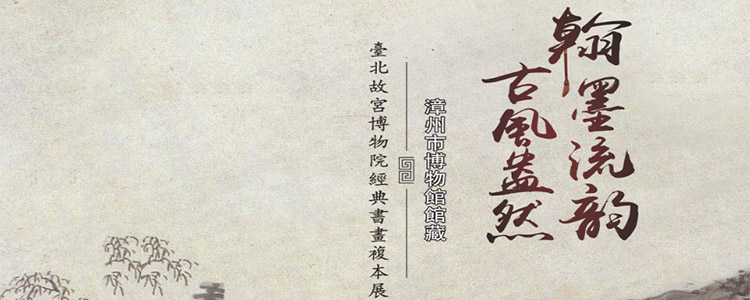 翰墨流韵
古風盎然
漳州市博物館館藏
臺北故宮博物院經典書畫複本展